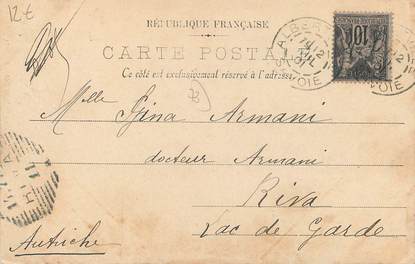 12€
RÉPUBLIQUE FRANÇAISE
CARTE POSTALE
Ce côté est exclusivement réservé à l'adresse
Mlle Gina Armani
docteur Armani
Riva
Lac de Garde
Autriche